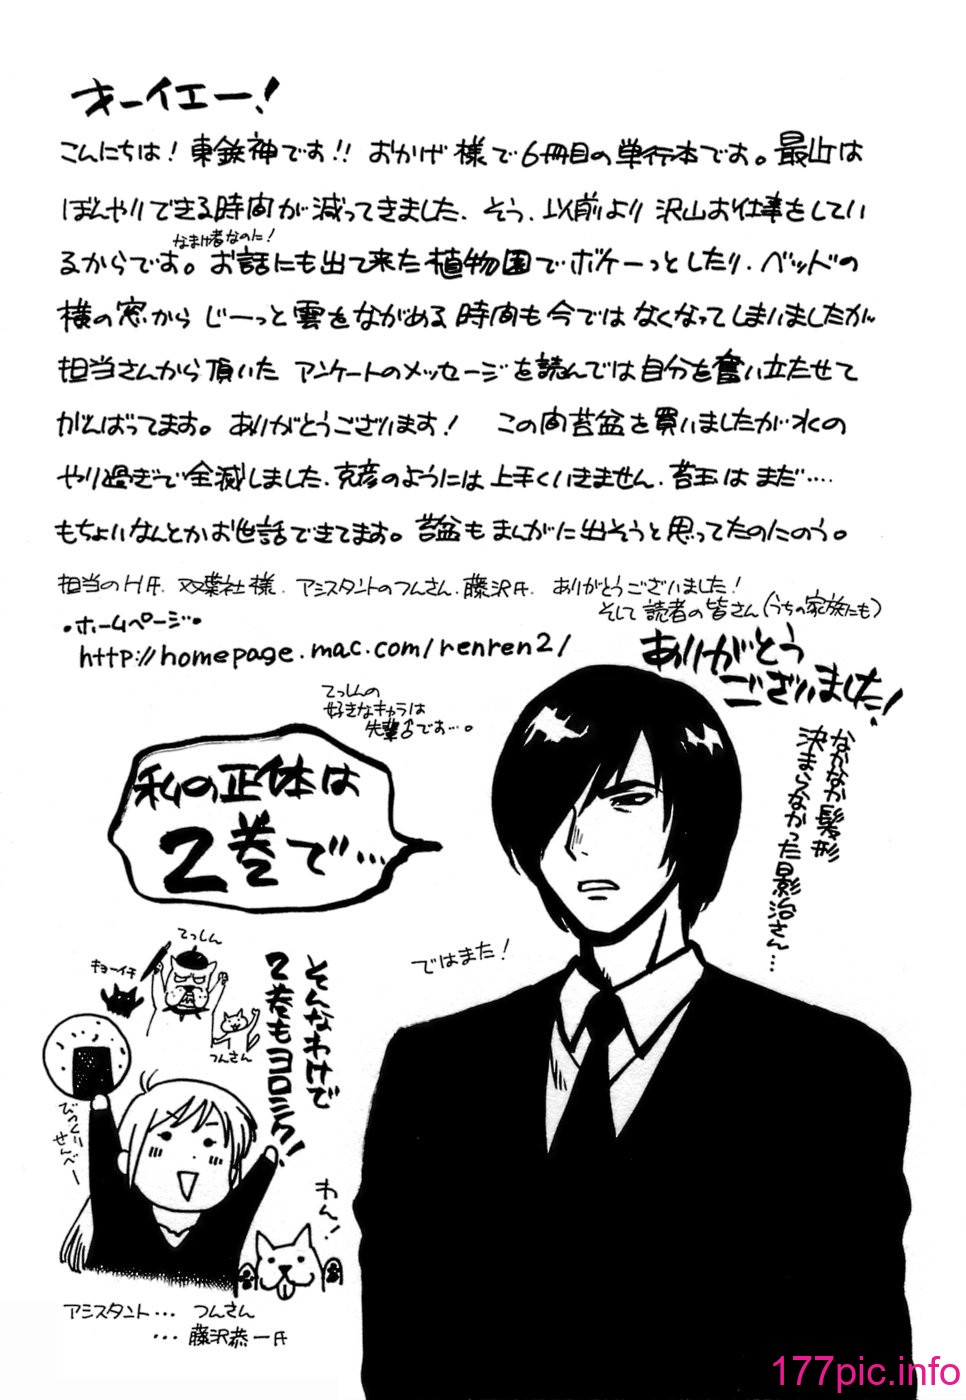 オーイエー!
こんにちは!東鉄神です!!おかげ様で6冊目の単行本です。最近は
ぼんやりできる時間が減ってきました。そう、以前より沢山お仕事をしてい
なまけ者なのに!
るからです。お話にも出て来た植物園でボケーっとしたり、ベッドの
横の窓からじーっと雲をながめる時間も今ではなくなってしまいましたが
担当さんから頂いたアンケートのメッセージを読んでは自分を奮い立たせて
がんばってます。ありがとうございます! この間苔盆を買いましたが水の
やり過ぎで全滅しました。克彦のようには上手くいきません。苔玉はまだ‥‥
もちょいなんとかお世話できてます。苔盆もまんがに出そうと思ってたのにのう。
担当のH氏、双葉社様、アシスタントのつんさん、藤沢氏、ありがとうございました!
そして読者の皆さん(うちの家族にも)
ありがとう
ございました!
・ホームページ・
http://homepage.mac.com/renren2/
てっしんの
好きなキャラは
先輩♂です…。
なかなか髪形
決まらなかった影治さん…
私の正体は
2巻で…
ではまた!
てっしん
キョーイチ
つんさん
そんなわけで
2巻もヨロシク!
びっくり
せんべー
わん!
アシスタント… つんさん
… 藤沢恭一氏
177pic.info